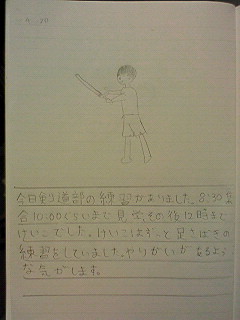 今日剣道部の練習がありました。8:30集
合10:00くらいまで見学、その後12時まで
けいこでした。けいこはずーと足さばきの
練習をしていました。やりがいがあるよう
な気がします。